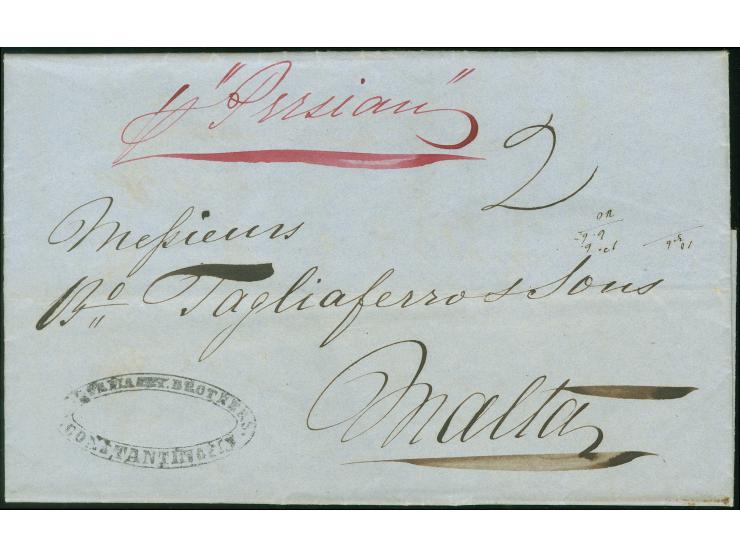 p "Persian"
2
Messieurs
Bo Tagliaferro & Sons
Malta
BROTHERS.
CONSTANTINOPLE